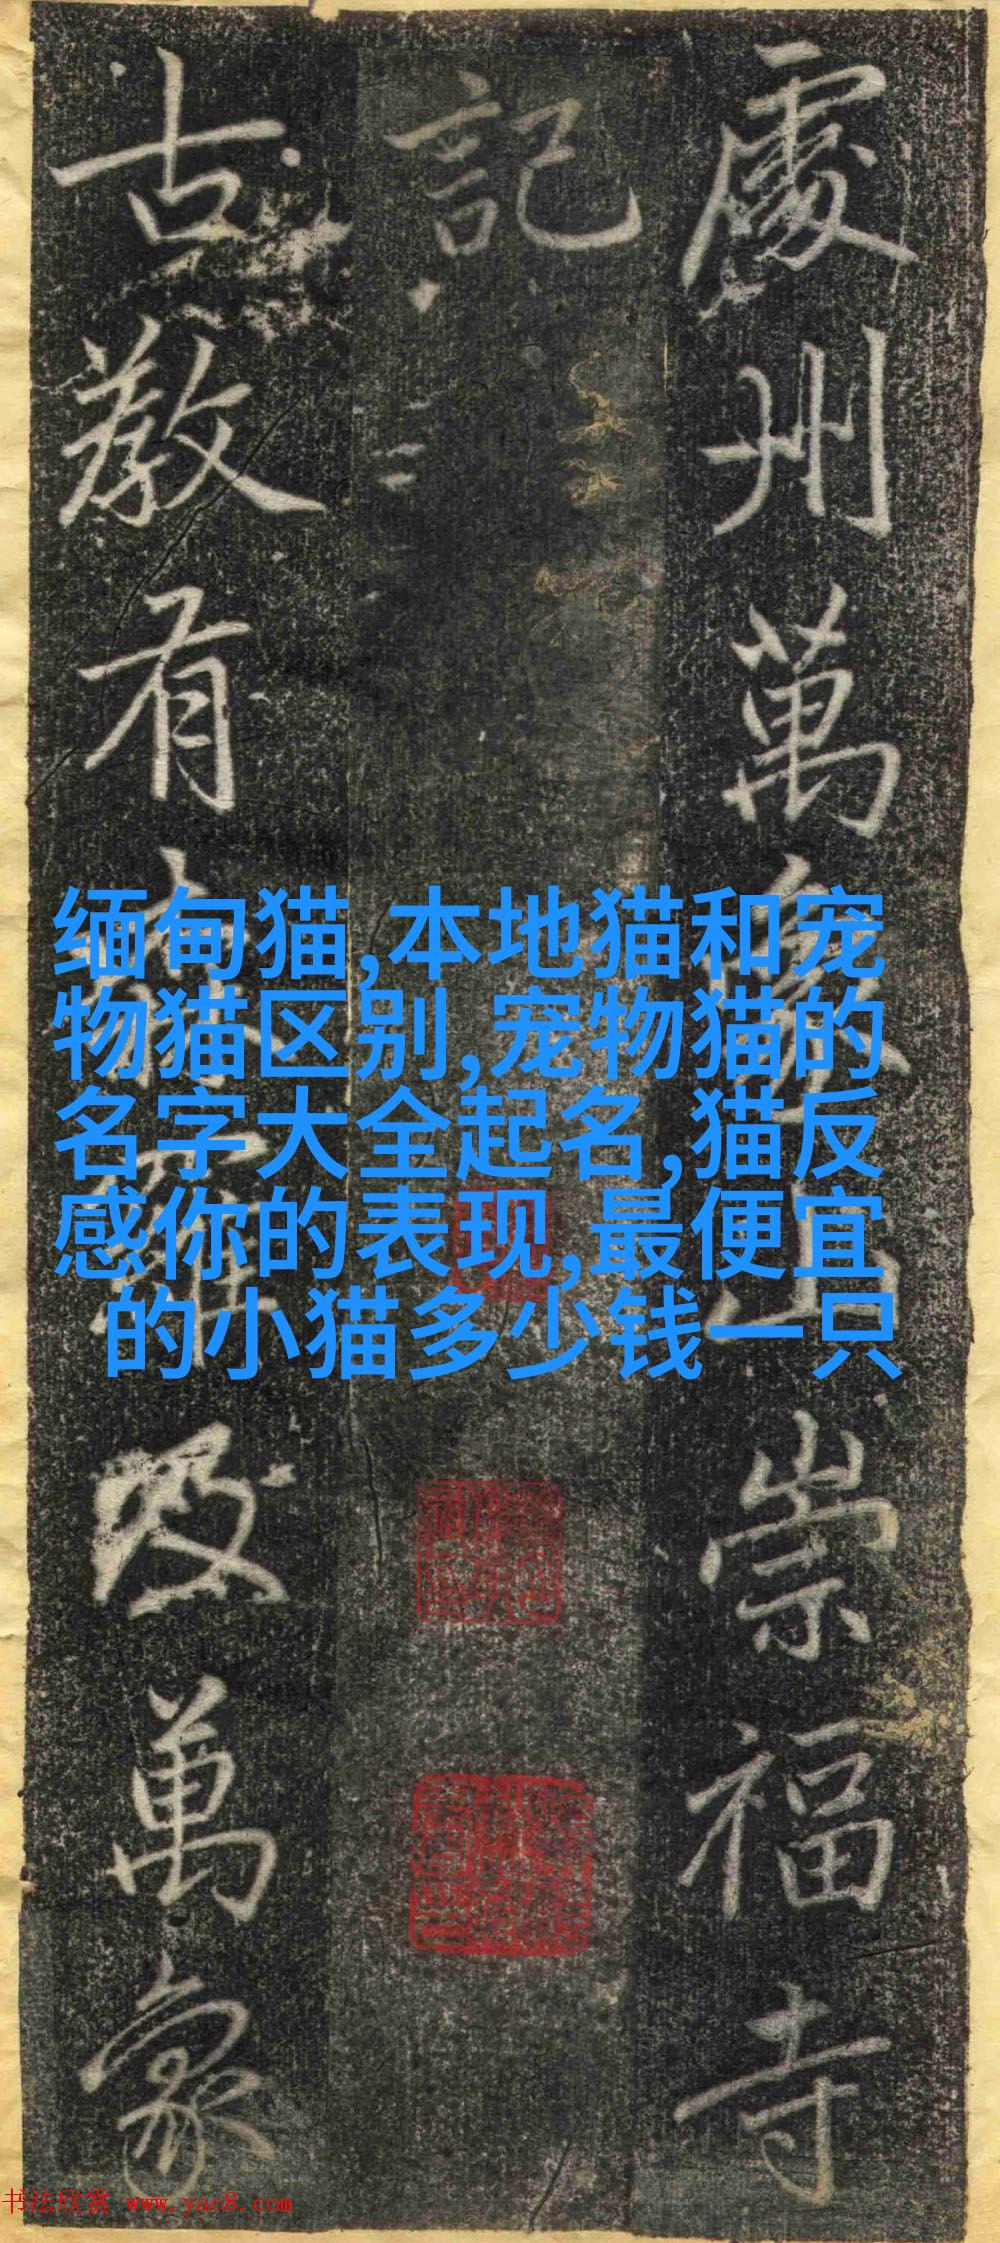 處州萬象山崇福寺
記
古教有
及萬象
缅甸猫,本地猫和宠
物猫区别,宠物猫的
名字大全起名,猫反
感你的表现,最便宜
的小猫多少钱一只
书法欣赏 www.yac8.com